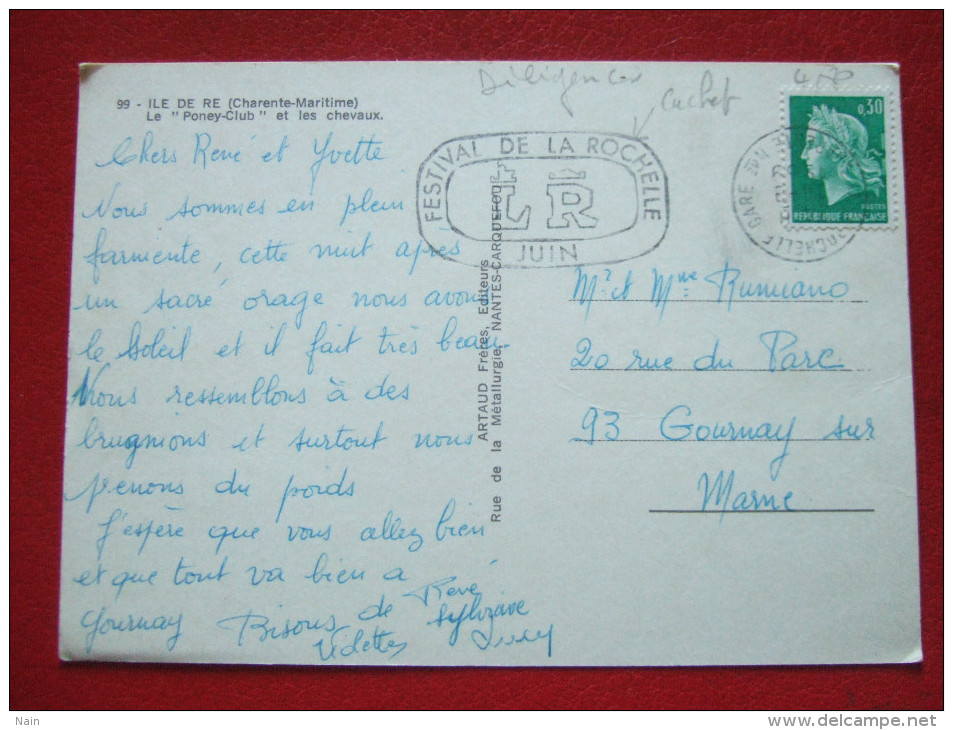 Diligences
cachet
99 - ILE DE RE (Charente-Maritime)
Le "Poney-Club" et les chevaux.
FESTIVAL DE LA ROCHELLE
LR
JUIN
LA ROCHELLE GARE
0,30
POSTES
REPUBLIQUE FRANÇAISE
Chers René et Yvette
Nous sommes en plein
farniente, cette nuit après
un sacré orage nous avons
le soleil et il fait très beau.
Nous ressemblons à des
brugnions et surtout nous
prenons du poids
J'espère que vous allez bien
et que tout va bien a
Gournay Bisous de René
Sylviane
Videttes
ARTAUD Frères, Editeurs
Rue de la Métallurgie, NANTES-CARQUEFOU
Mr et Mme
20 rue du Parc
93 Gournay sur
Marne
Nain
delcampe.net